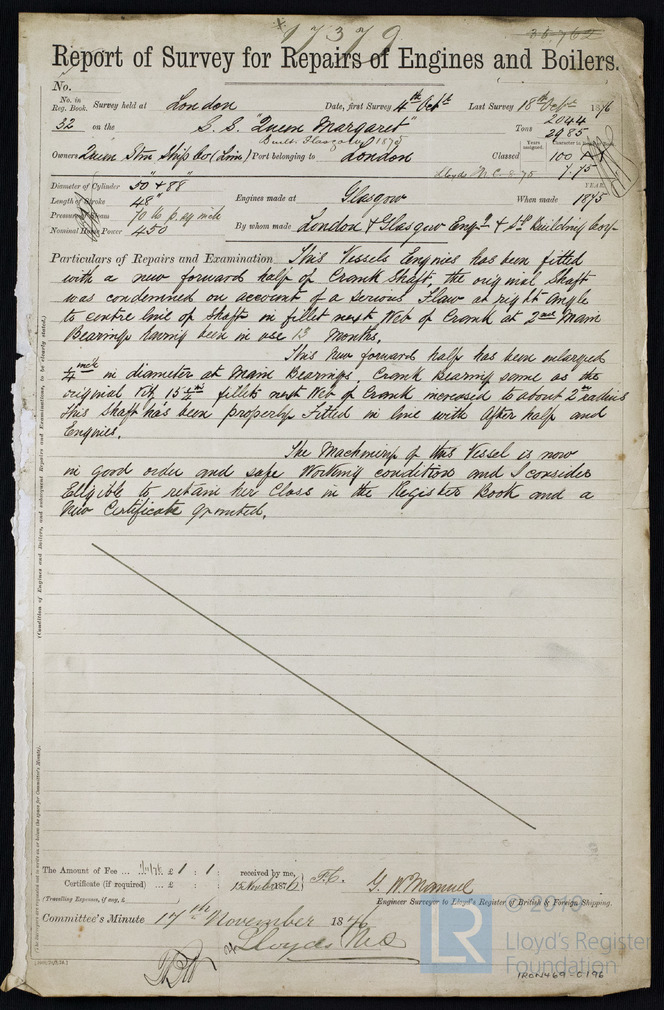 * 17379.
35,762
Report of Survey for Repairs of Engines and Boilers.
No.
No. in Reg. Book. Survey held at London Date, first Survey 4th Octr Last Survey 18th Octr 1876
32 on the S. S. "Queen Margaret" Tons 2044 2985
Built Glasgow 1875
Years assigned. Character in Register Book
Owners Queen Stm Ship Co (Lim) Port belonging to London Classed 100 A
Lloyds M.C. 8-75 7.75
YEAR.
Diameter of Cylinder 50" + 88"
Length of Stroke 48"
Pressure of Steam 70 lb p. sq inch
Nominal Horse Power 450
Engines made at Glasgow When made 1875
By whom made London & Glasgow Engg & S.B. Building Corp
Particulars of Repairs and Examination This Vessels Engines has been fitted
with a new forward half of Crank Shaft, the original Shaft
was condemned on account of a serious Flaw at right angle
to centre line of shaft in fillet next Web of Crank at 2nd Main
Bearing having been in use 13 months.
This New forward half has been enlarged
1/4 inch in diameter at Main Bearings, Crank Bearing same as the
original viz, 15 1/2 ins fillets next Web of Crank increased to about 2 in radius
This Shaft has been properly Fitted in line with After half and
Engines.
The Machinery of this Vessel is now
in good order and safe Working condition and I consider
Eligible to retain her Class in the Register Book and a
New Certificate granted.
(Condition of Engines and Boilers, and subsequent Repairs and Examinations, to be clearly stated.)
The Amount of Fee ... £ 1 : 1 : received by me,
Certificate (if required) ... £ : 15 Novbr 1876
(Travelling Expenses, if any, £ )
G. W. Manuel
Engineer Surveyor to Lloyd's Register of British & Foreign Shipping.
Committee's Minute 17th November 1876
Lloyds M.C.
© 2018
LR
Lloyd's Register
Foundation
IRON469-0196